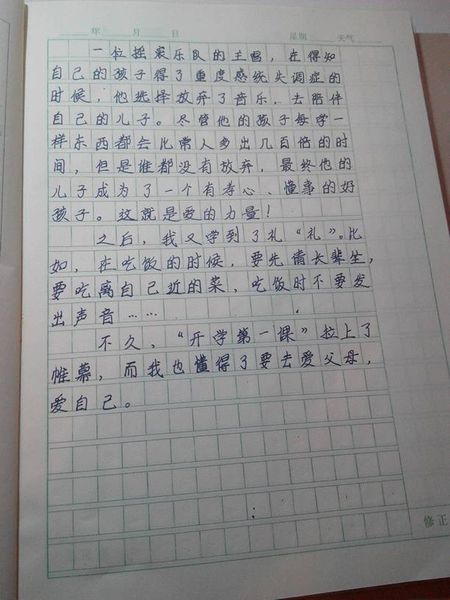 年 月 日 星期 天气
一位摇滚乐队的主唱，在得知
自己的孩子得了重度感统失调症的
时候，他选择放弃了音乐，去陪伴
自己的儿子。尽管他的孩子每学一
样东西都会比常人多出几百倍的时
间，但是谁都没有放弃，最终他的
儿子成为了一个有孝心、懂事的好
孩子。这就是爱的力量！
之后，我又学到了礼“礼”。比
如，在吃饭的时候，要先请长辈坐，
要吃离自己近的菜，吃饭时不要发
出声音……
不久，“开学第一课”拉上了
帷幕，而我也懂得了要去爱父母，
爱自己。
修正